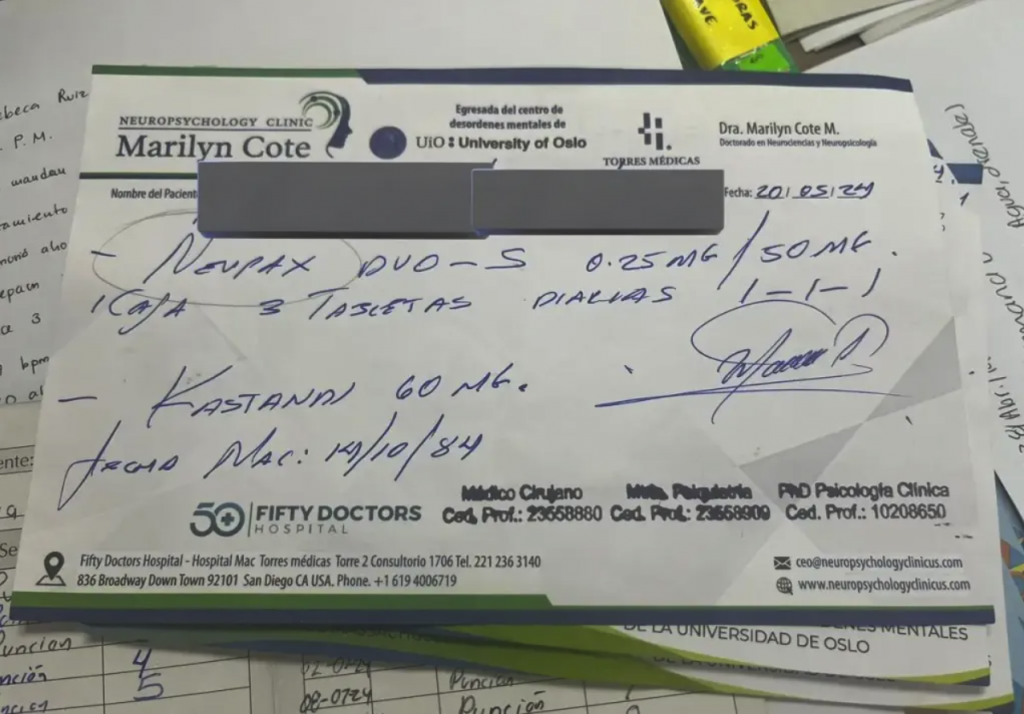 ORAS
AVE
NEUROPSYCHOLOGY CLINIC
Marilyn Cote
Egresada del centro de
desordenes mentales de
UiO: University of Oslo
TORRES MÉDICAS
Dra. Marilyn Cote M.
Doctorado en Neurociencias y Neuropsicología
Nombre del Pacient
Fecha: 20/05/24
- NEUPAX DUO-S 0.25 MG/50 MG.
1 CAJA 3 TABLETAS DIARIAS 1-1-1
- KASTANDI 60 MG.
FECHA NAC: 14/10/84
50 FIFTY DOCTORS
HOSPITAL
Médico Cirujano
Ced. Prof.: 23558880
Mtria. Psiquiatría
Ced. Prof.: 23558909
PhD Psicología Clínica
Ced. Prof.: 10208650
Fifty Doctors Hospital - Hospital Mac Torres médicas Torre 2 Consultorio 1706 Tel. 221 236 3140
836 Broadway Down Town 92101 San Diego CA USA. Phone. +1 619 4006719
ceo@neuropsychologyclinicus.com
www.neuropsychologyclinicus.com
ebeca Ruiz
P. M.
mandan
amiento
epam
a 3
bpm
ente:
DE LA UNIVERSIDAD DE OSLO
ENES MENTALES
unción
4
nción
5
08-0724
Punción